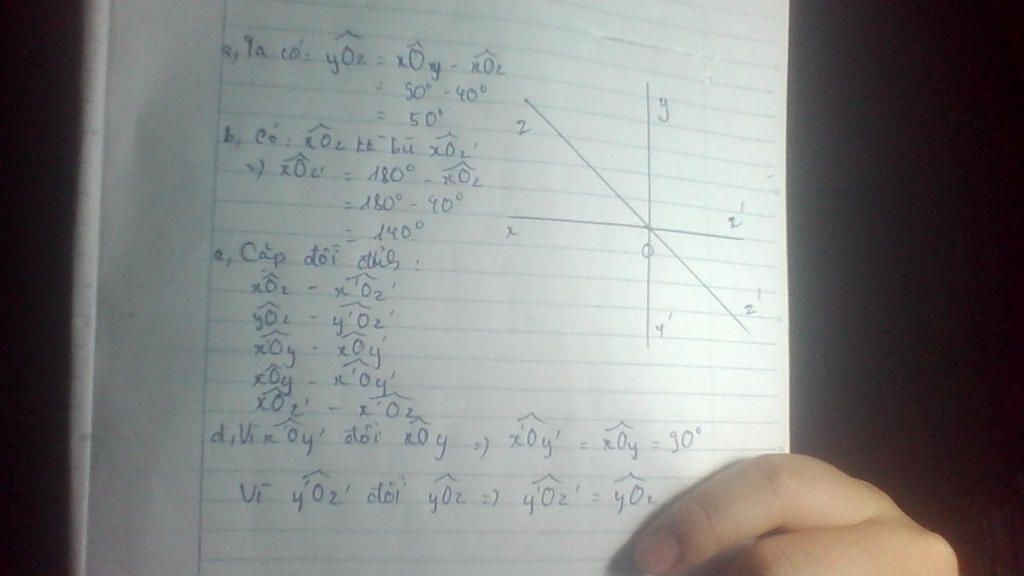 a, Ta có: yOz = xOy - xOz
= 90° - 40°
= 50°
b, Có: xOz kề bù xOz'
=) xOz' = 180° - xOz
= 180° - 40°
= 140°
c, Cặp đối đỉnh:
xOz - x'Oz'
yOz - y'Oz'
x'Oy - xOy'
xOy - x'Oy'
xOz' - x'Oz
d, Vì x'Oy' đối xOy =) x'Oy' = xOy = 90°
Vì y'Oz' đối yOz =) y'Oz' = yOz
y
z
x
x'
O
z'
y'